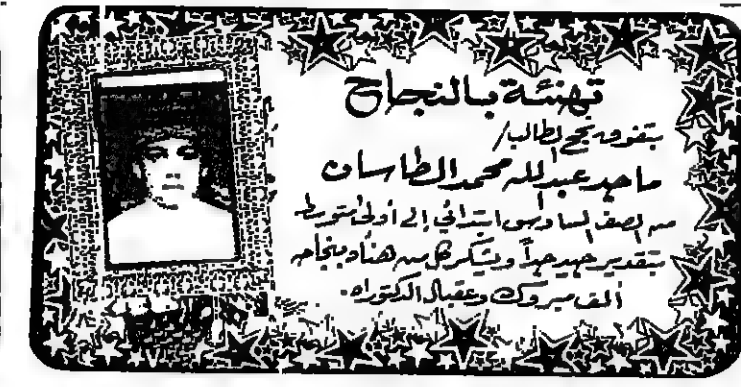 تهنئة بالنجاح
بتفوق نجح الطالب/
ماجد عبدالله محمد الطاسان
من الصف السادس ابتدائي إلى أولى متوسط
بتقدير جيد جداً ويشكر كل من هنأه بنجاحه
ألف مبروك وعقبال الدكتوراه.